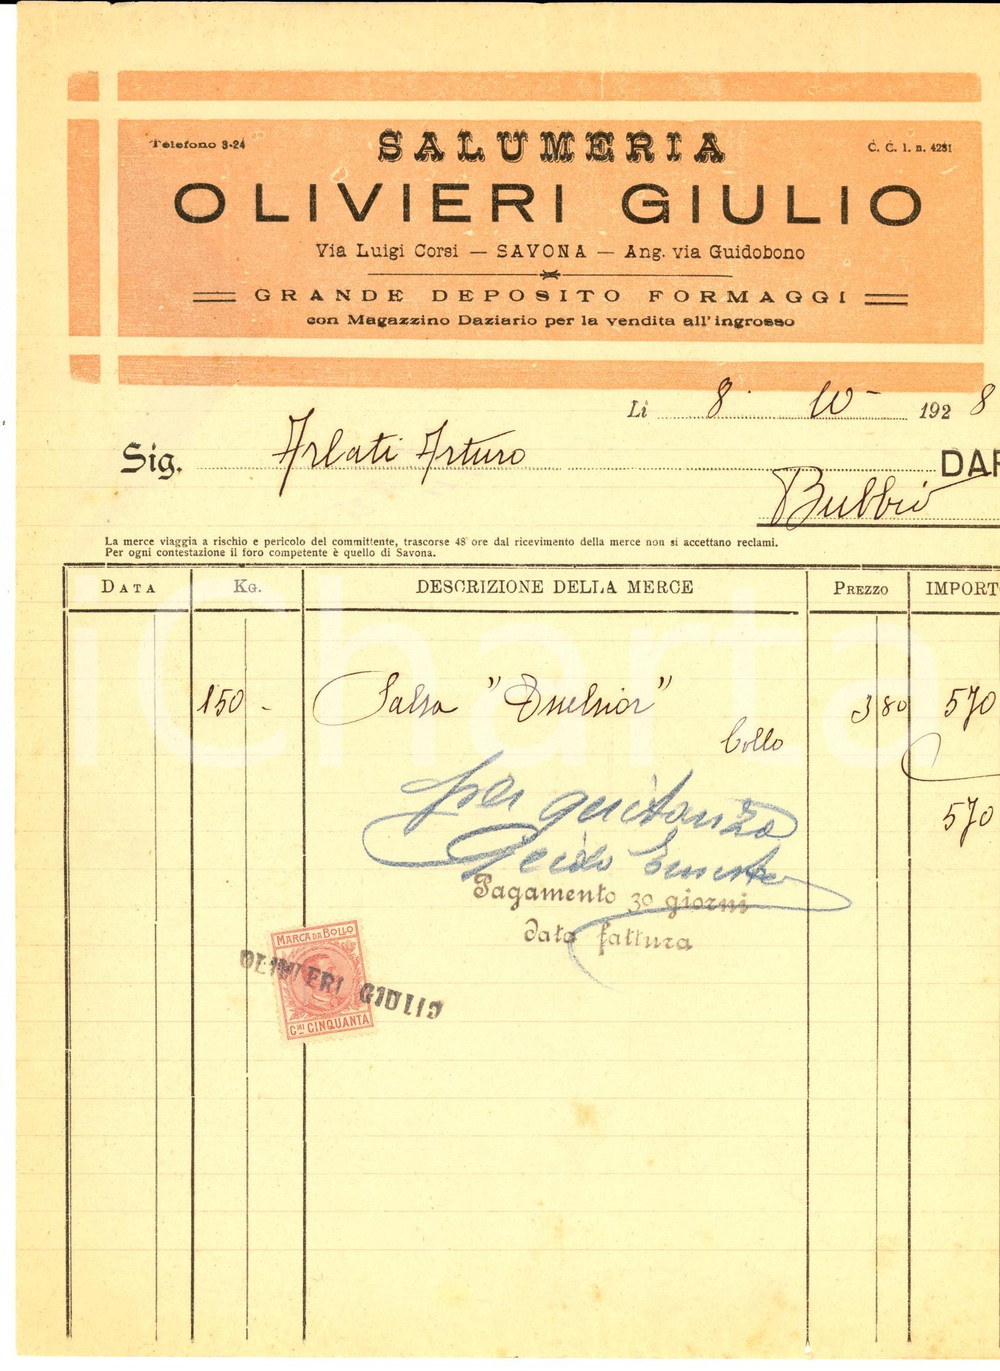 Telefono 3-24
SALUMERIA
C. C. I. n. 4281
OLIVIERI GIULIO
Via Luigi Corsi — SAVONA — Ang. via Guidobono
GRANDE DEPOSITO FORMAGGI
con Magazzino Daziario per la vendita all'ingrosso
Lì 8. 10 - 1928
Sig. Arlati Arturo DAR
Bubbio
La merce viaggia a rischio e pericolo del committente, trascorse 48 ore dal ricevimento della merce non si accettano reclami.
Per ogni contestazione il foro competente è quello di Savona.
DATA KG. DESCRIZIONE DELLA MERCE PREZZO IMPORTO
150 - Salsa "Excelsior" 3 80 570
bollo
570
per quitanza
Guido
Pagamento 30 giorni
data fattura
MARCA DA BOLLO
OLIVIERI GIULIO
CMI CINQUANTA
iCharta